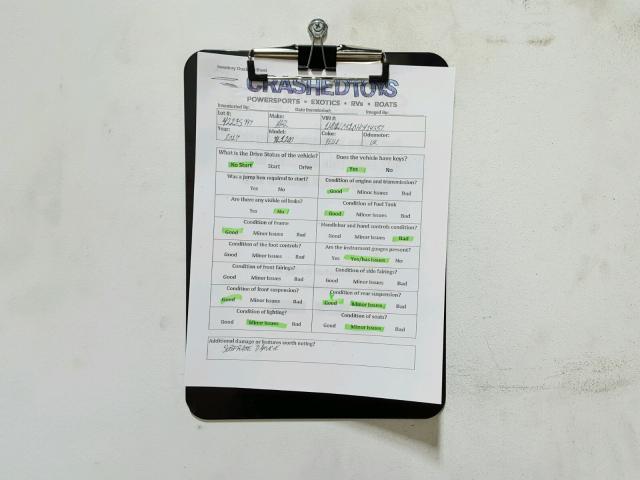 CRASHEDTOYS
POWERSPORTS • EXOTICS • RVs • BOATS
Inventoried By: Date Inventoried: Imaged By:
Lot #: Make: VIN #:
Year: Model: Color: Odometer:
What is the Drive Status of the vehicle? Does the vehicle have keys?
No Start Start Drive Yes No
Was a jump box required to start? Condition of engine and transmission?
Yes No Good Minor Issues Bad
Are there any visible oil leaks? Condition of Fuel Tank
Yes No Good Minor Issues Bad
Condition of Frame Handlebar and hand controls condition?
Good Minor Issues Bad Good Minor Issues Bad
Condition of the foot controls? Are the instrument gauges present?
Good Minor Issues Bad Yes Yes/has Issues No
Condition of front fairings? Condition of side fairings?
Good Minor Issues Bad Good Minor Issues Bad
Condition of front suspension? Condition of rear suspension?
Good Minor Issues Bad Good Minor Issues Bad
Condition of lighting? Condition of seats?
Good Minor Issues Bad Good Minor Issues Bad
Additional damage or features worth noting?